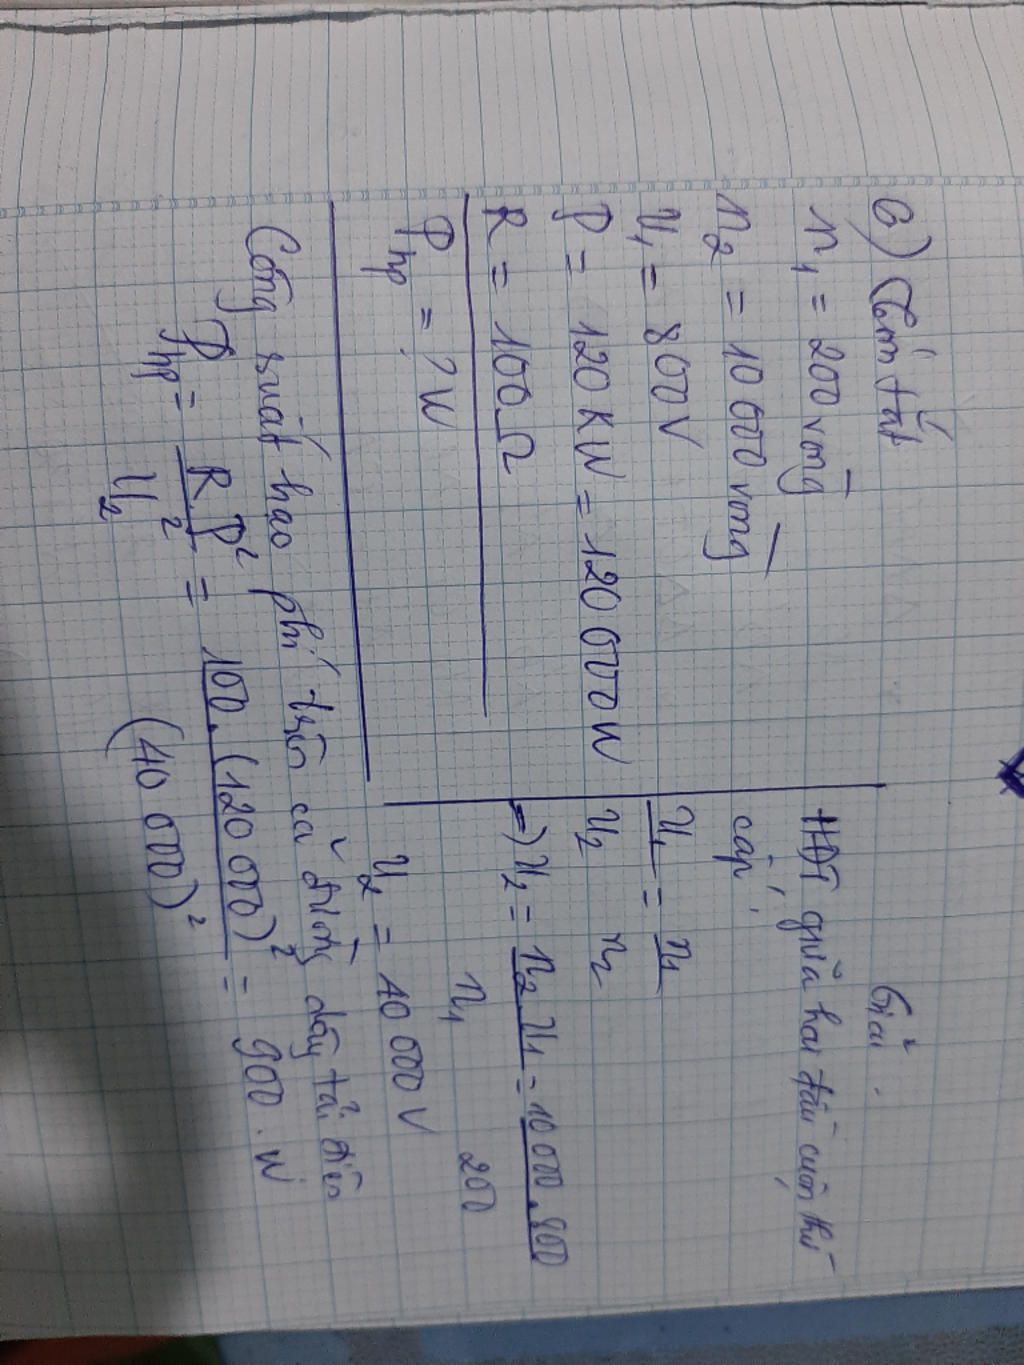 6) Tóm tắt
n₁ = 200 vòng
n₂ = 10 000 vòng
U₁ = 800V
P = 120 KW = 120 000 W
R = 100 Ω
P hp = ? W
Giải.
HĐT giữa hai đầu cuộn thứ
cấp.
U₁/U₂ = n₁/n₂
=) U₂ = n₂.U₁/n₁ = 10 000.800/200
U₂ = 40 000 V
Công suất hao phí trên cả đường dây tải điện
P hp = R.P²/U₂² = 100.(120 000)²/(40 000)² = 900.W